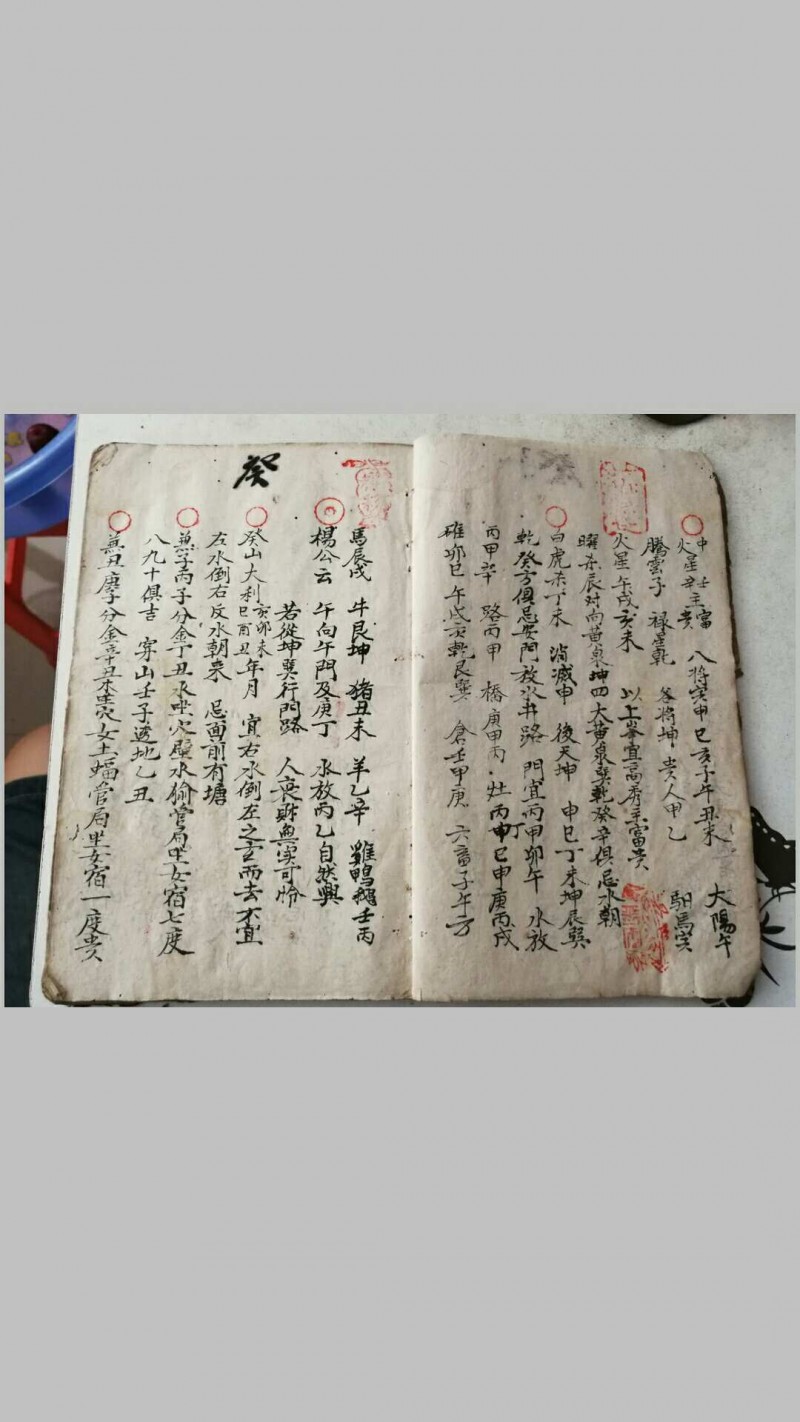 大陽午
火星 申辛 壬主富貴 八將寅甲巳亥子午丑未 駟馬寅
騰雲子 祿星乾 谷將坤 貴人甲乙
火星午戌亥未 以上峯宜高秀主富贵
曜杀辰对向黄泉坤四大黄泉巽乾癸辛俱忌水朝
白虎杀丁未 消滅申 後天坤 申巳丁未坤辰巽
乾癸方俱忌安門放水井路 門宜丙甲卯午 水放
丙甲辛 路丙甲 橋庚甲丙 灶丙丁巳申庚丙戌
碓卯巳午戌亥乾艮巽 倉壬甲庚 六畜子午方
馬辰戌 牛艮坤 猪丑未 羊乙辛 雞鴨鵝壬丙
楊公云 午向午門及庚丁 水放丙乙自然興
若從坤巽行門路 人丧財 寔可怜
癸
癸山大利亥卯未巳酉丑年月 宜右水倒左之玄而去 不宜
左水倒右反水朝来 忌面前有塘
兼子丙子分金丁丑水 穴壁水貐管局坐女宿七度
八九十俱吉 穿山壬子透地乙丑
兼丑庚子分金辛丑木 穴女土蝠管局坐女宿一度贵